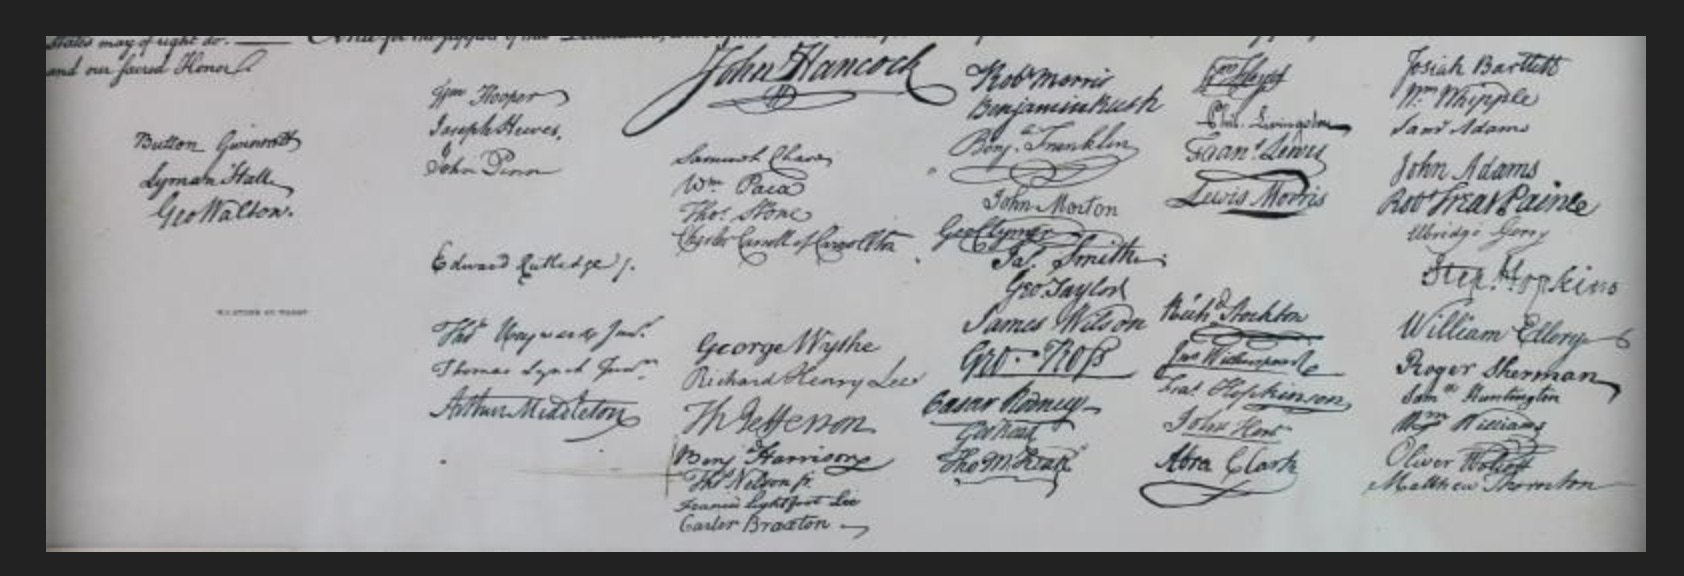 and our sacred Honor.
Button Gwinnett
Lyman Hall
Geo Walton.
Wm Hooper
Joseph Hewes,
John Penn
Edward Rutledge /.
Thos Heyward Junr.
Thomas Lynch Junr.
Arthur Middleton
John Hancock
Samuel Chase
Wm Paca
Thos. Stone
Charles Carroll of Carrollton
George Wythe
Richard Henry Lee
Th Jefferson
Benj Harrison
Thos Nelson jr.
Francis Lightfoot Lee
Carter Braxton
Robt Morris
Benjamin Rush
Benj. Franklin
John Morton
Geo Clymer
Jas. Smith
Geo Taylor
James Wilson
Geo. Ross
Caesar Rodney
Geo Read
Tho M:Kean
Wm Floyd
Phil. Livingston
Frans. Lewis
Lewis Morris
Richd Stockton
Jno Witherspoon
Fras. Hopkinson
John Hart
Abra Clark
Josiah Bartlett
Wm Whipple
Saml Adams
John Adams
Robt Treat Paine
Elbridge Gerry
Step. Hopkins
William Ellery
Roger Sherman
Saml Huntington
Wm Williams
Oliver Wolcott
Matthew Thornton